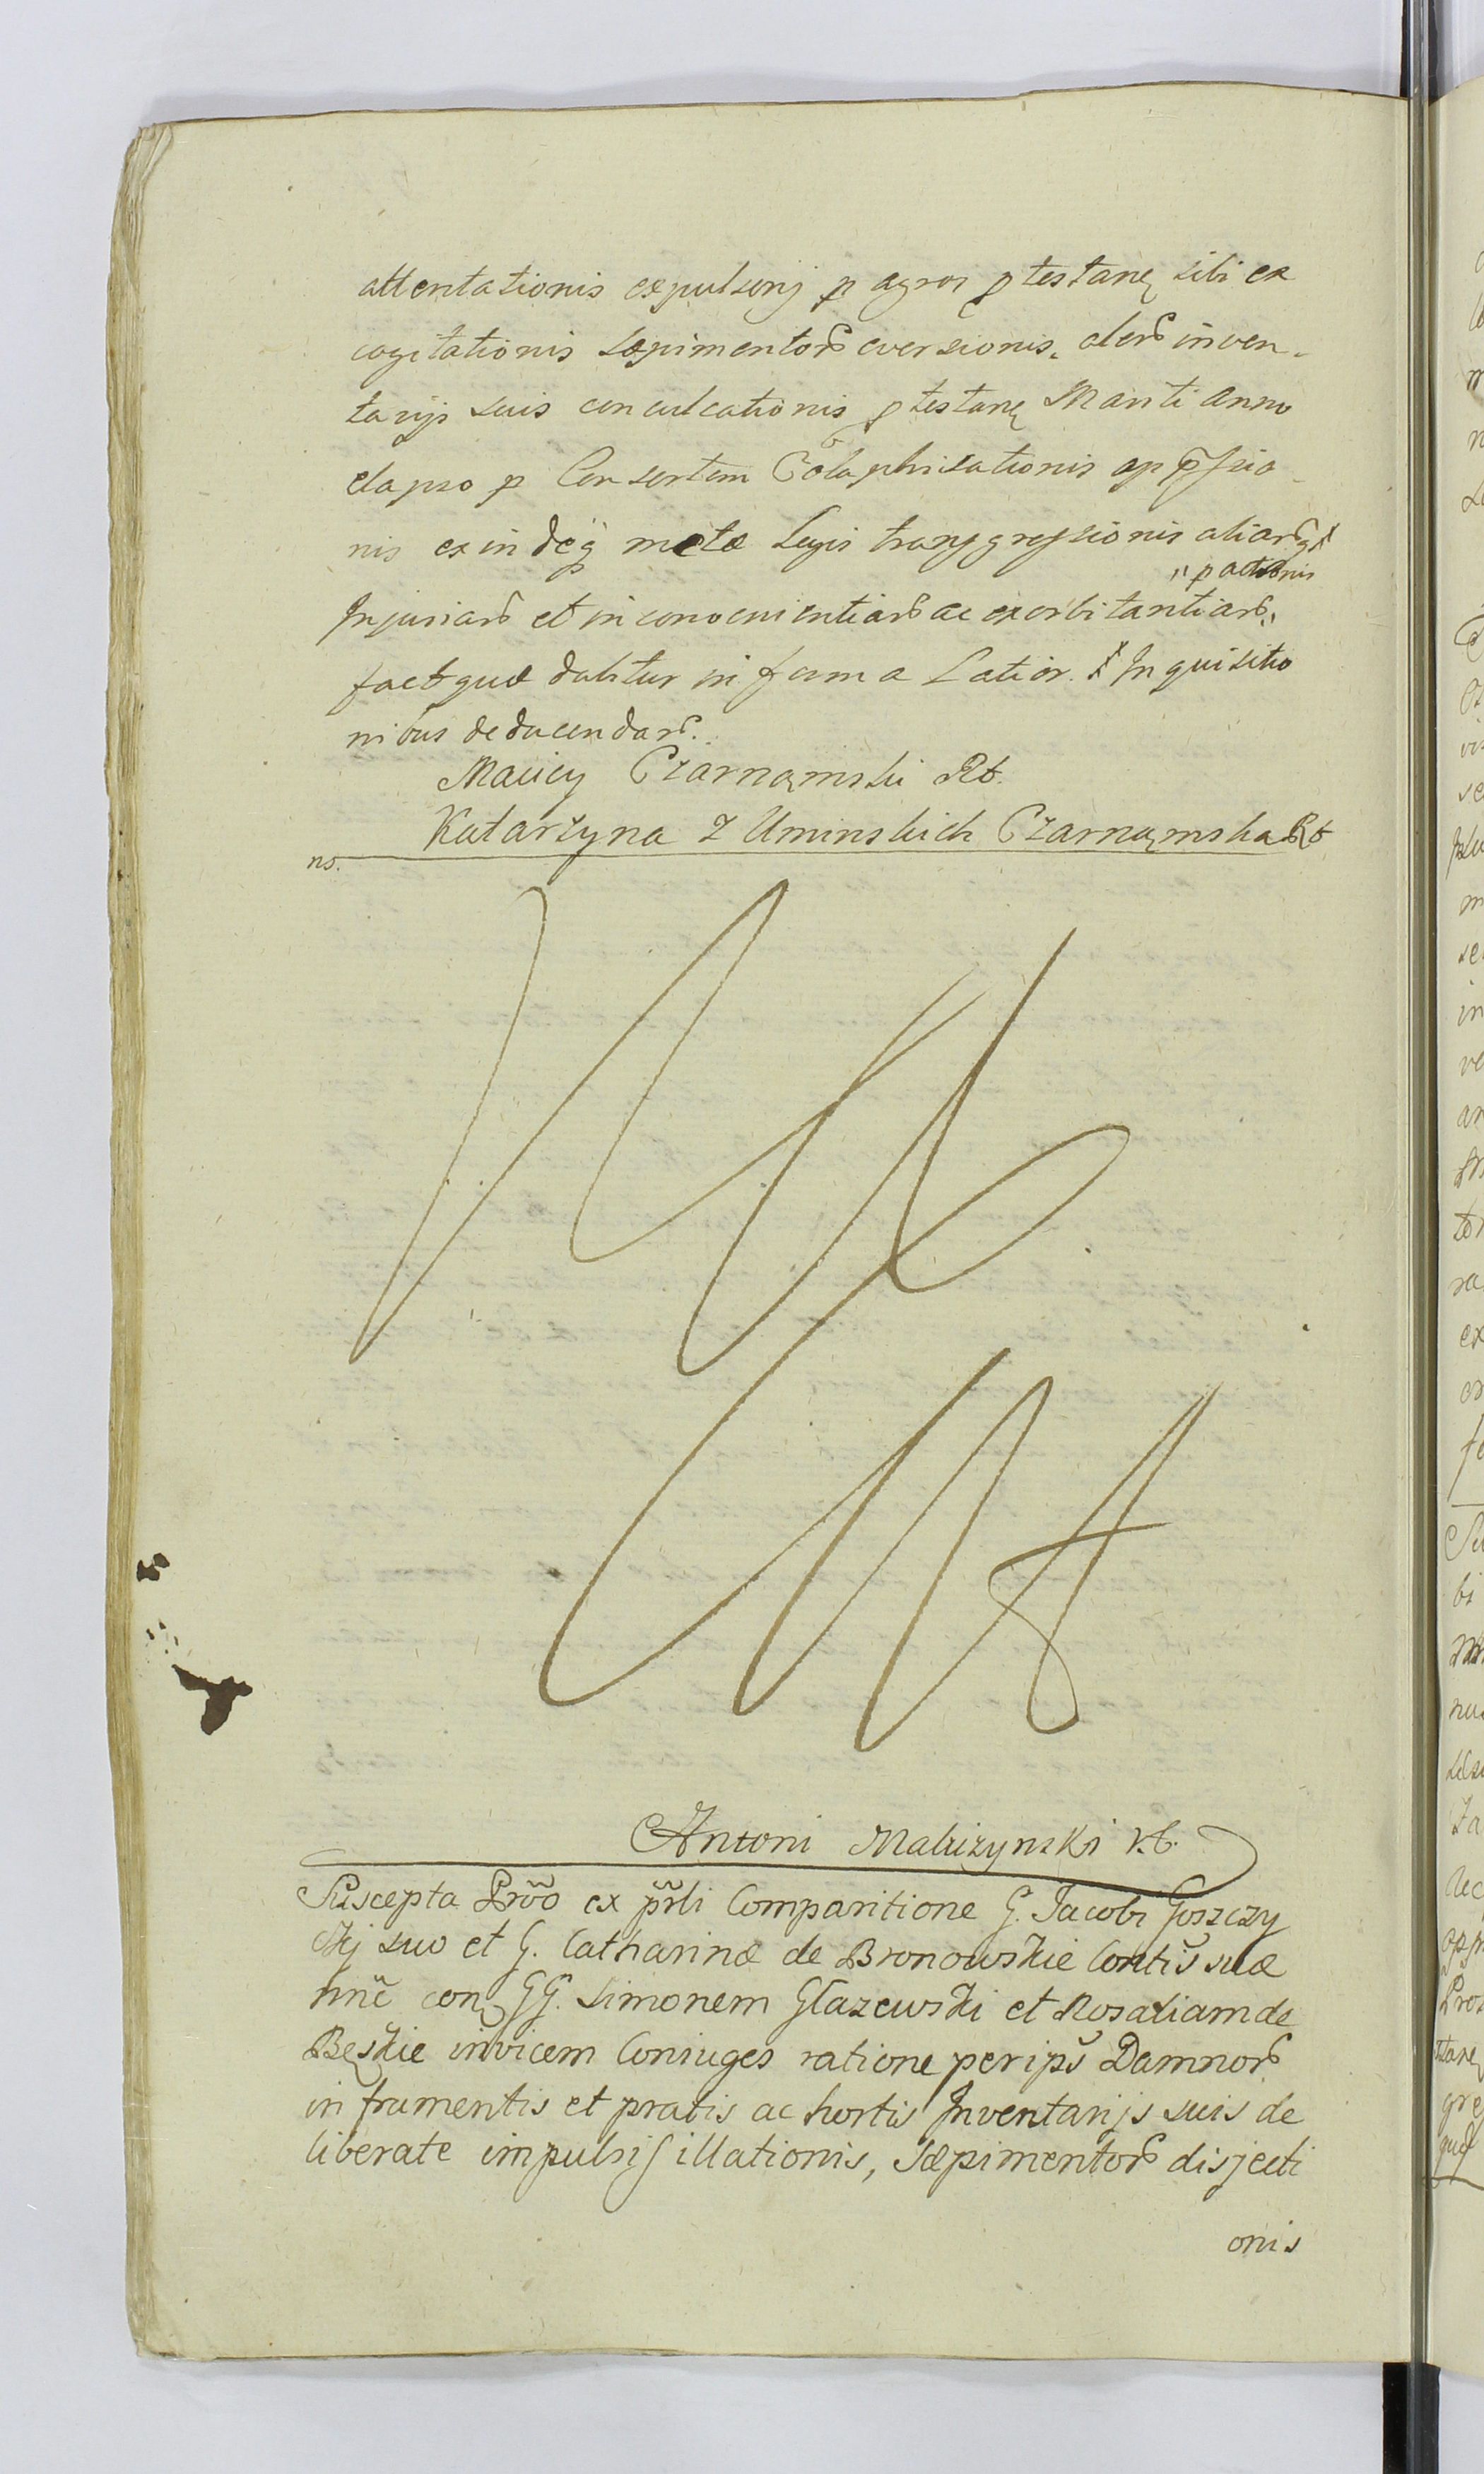 attentationis expulsionis p agros ptestanę sibi ex
cogitationis sæpimentorũ eversionis, olerũ inven-
tarijs suis conculcationis ptestanę Mariti anno
elapso p Consortem Colaphisationis opp̃ssio-
nis exindeq̃ metæ Legis transgressionis aliarũq
"pactionis
Injuriarũ et inconvenientiarũ ac exorbitantiarũ"
factquæ dabitur in forma Latior. Inquisitio
nibus deducendarũ.
Maciey Czarnomski Rb.
Katarzyna z Uminskich Czarnomska Rb
ns.
Antoni Maluzynski V.C.
Suscepta Prõõ ex p̃r̃li Comparitione G. Jacobi Goszczy
ckj suo et G. Catharinæ de Bronowskie Contis̃ suæ
nñe con GG. Simonem Glazewski et Rosaliam de
Bęskie invicem Coniuges ratione perips̃ Damnorũ
in frumentis et pratis ac hortis Inventarijs suis de
liberate impulsis illationis, Sæpimentorũ disjecti
onis